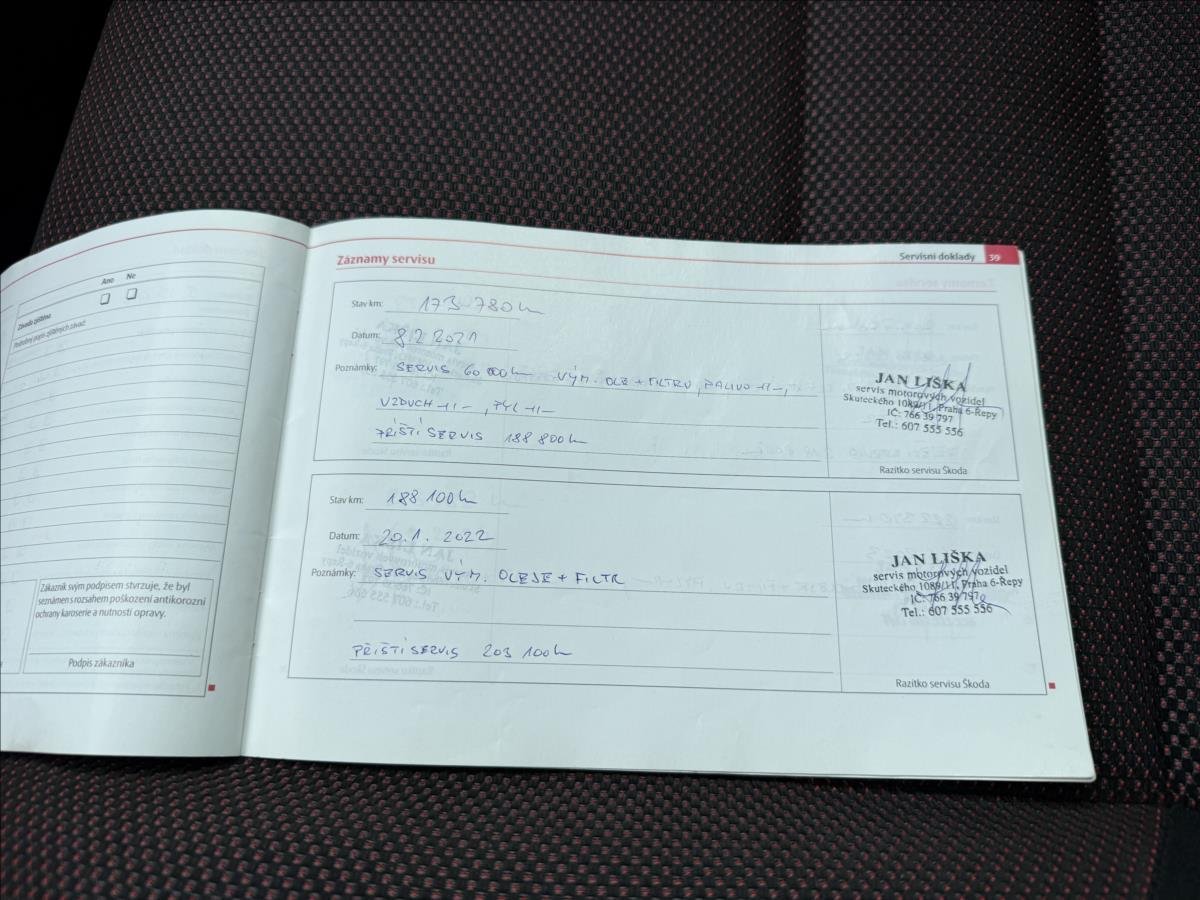 Ano Ne
Závada zjištěna
Podrobný popis zjištěných závad:
Zákazník svým podpisem stvrzuje, že byl
seznámen s rozsahem poškození antikorozní
ochrany karoserie a nutností opravy.
Podpis zákazníka
Záznamy servisu
Servisní doklady 39
Stav km: 173 780 km
Datum: 8.2.2021
Poznámky: SERVIS 60 000 km VÝM. OLE + FILTRU, PALIVO -11-,
VZDUCH -11-, PYL -11-
PŘÍŠTÍ SERVIS 188 800 km
JAN LIŠKA
servis motorových vozidel
Skuteckého 1089/11, Praha 6-Řepy
IČ: 766 39 797
Tel.: 607 555 556
Razítko servisu Škoda
Stav km: 188 100 km
Datum: 20.1.2022
Poznámky: SERVIS VÝM. OLEJE + FILTR
PŘÍŠTÍ SERVIS 203 100 km
JAN LIŠKA
servis motorových vozidel
Skuteckého 1089/11, Praha 6-Řepy
IČ: 766 39 797
Tel.: 607 555 556
Razítko servisu Škoda